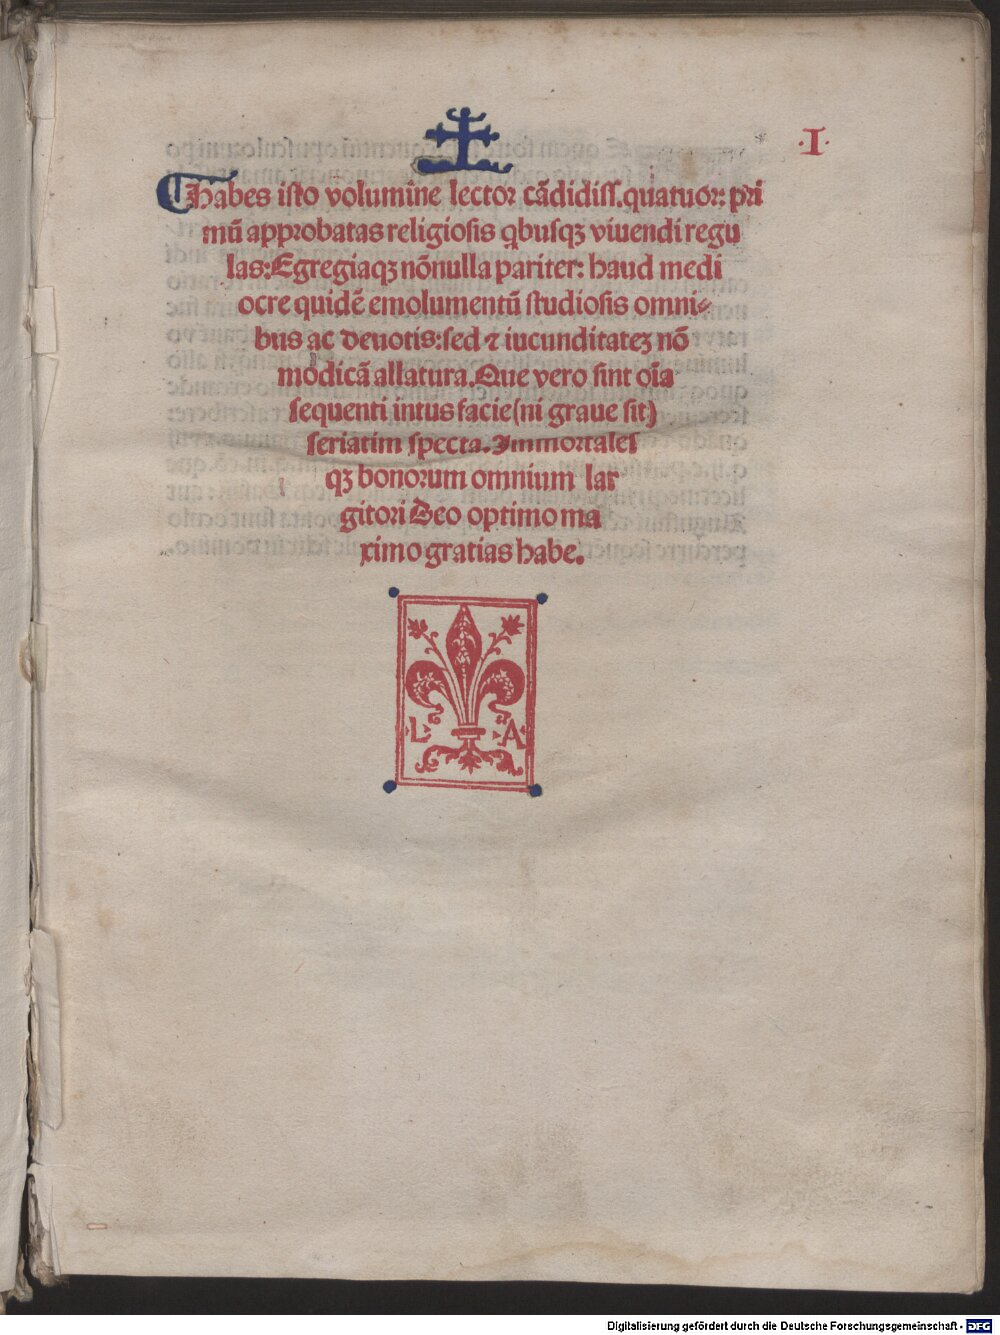 ·I·
Habes isto volumine lector cãdidiss. quatuor: pri
mũ approbatas religiosis qbusqꝫ viuendi regu
las: Egregiaqꝫ nõnulla pariter: haud medi
ocre quidẽ emolumentũ studiosis omni-
bus ac deuotis: sed ⁊ iucunditateꝫ nõ
modicã allatura. Que vero sint oĩa
sequenti intus facie (ni graue sit)
seriatim specta. Immortales
qꝫ bonorum omnium lar
gitori Deo optimo ma
ximo gratias habe.
L A
Digitalisierung gefördert durch die Deutsche Forschungsgemeinschaft - DFG